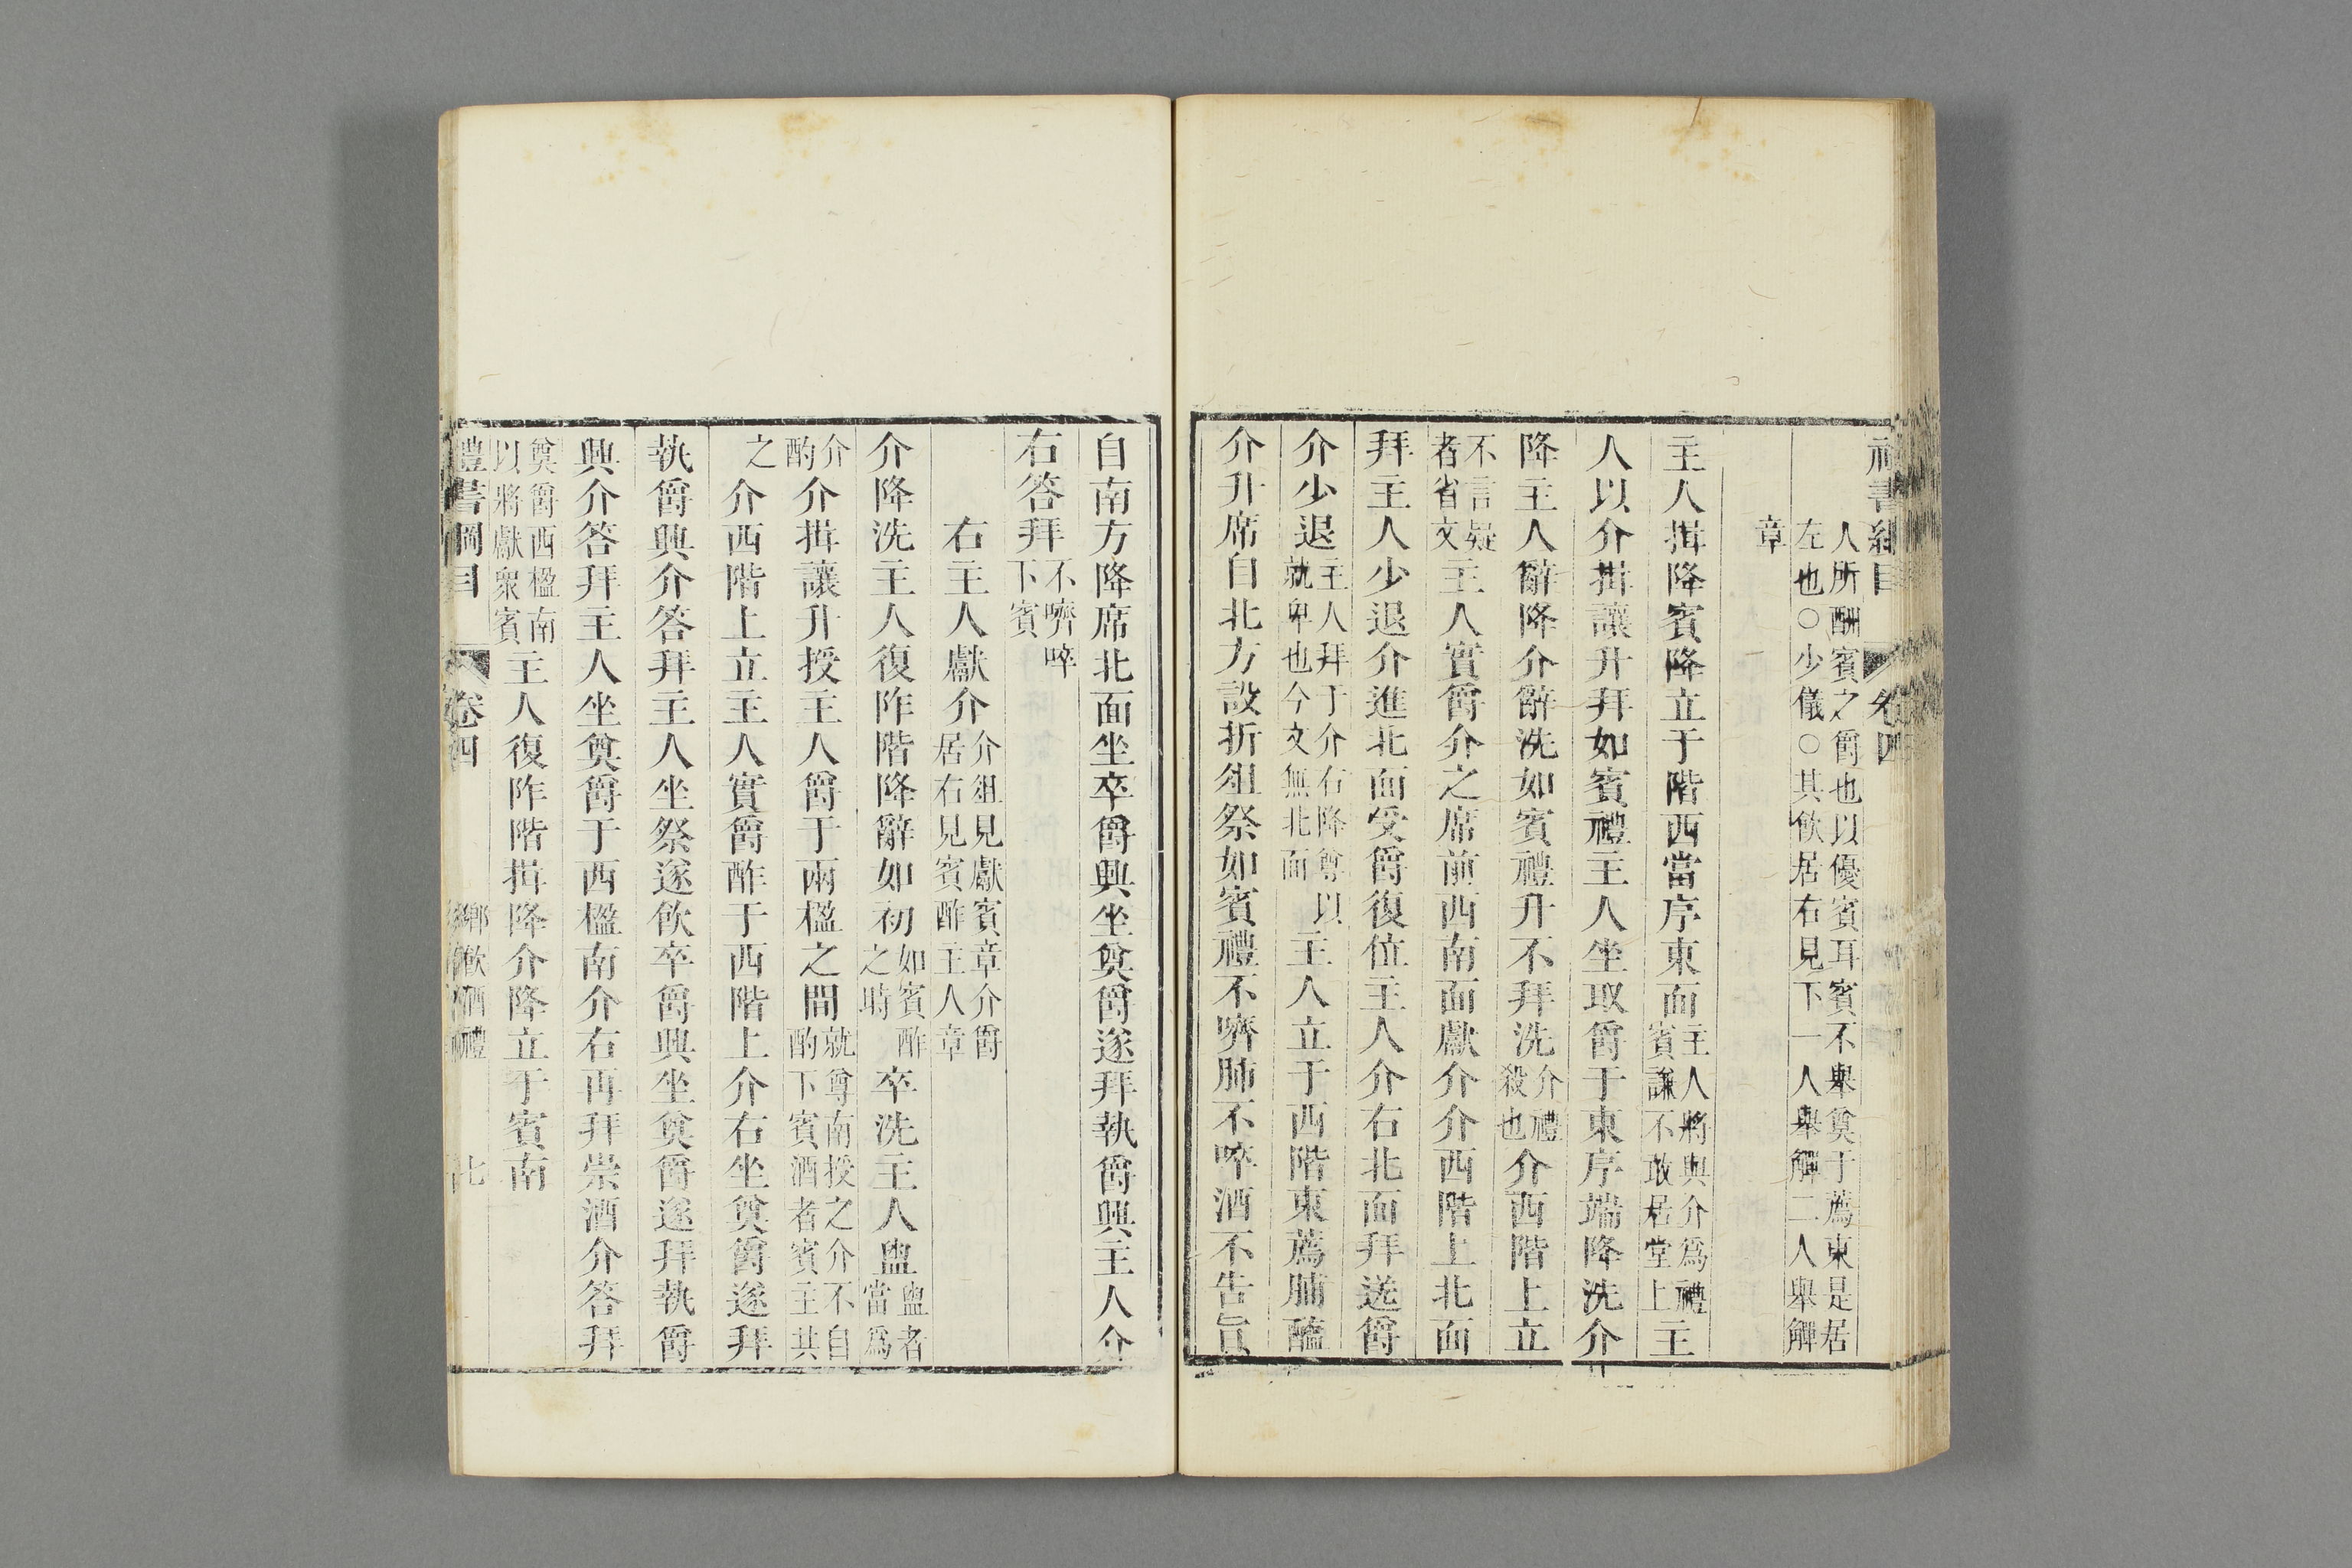 禮書綱目 卷四
人所酬賓之爵也以優賓耳賓不舉奠于薦東是居
左也○少儀○其飲居右見下一人舉觶二人舉觶
章
主人揖降賓降立于階西當序東面主人將與介爲禮賓謙不敢居堂上主
人以介揖讓升拜如賓禮主人坐取爵于東序端降洗介
降主人辭降介辭洗如賓禮升不拜洗介禮殺也介西階上立
不言疑者省文主人實爵介之席前西南面獻介介西階上北面
拜主人少退介進北面受爵復位主人介右北面拜送爵
介少退主人拜于介右降尊以就卑也今文無北面主人立于西階東薦脯醢
介升席自北方設折俎祭如賓禮不嚌肺不啐酒不告旨
自南方降席北面坐卒爵興坐奠爵遂拜執爵興主人介
右答拜不嚌啐下賓
右主人獻介介俎見獻賓章介爵居右見賓酢主人章
介降洗主人復阼階降辭如初如賓酢之時卒洗主人盥盥者當爲
介酌介揖讓升授主人爵于兩楹之間就尊南授之介不自酌下賓酒者賓主共
之介西階上立主人實爵酢于西階上介右坐奠爵遂拜
執爵興介答拜主人坐祭遂飲卒爵興坐奠爵遂拜執爵
興介答拜主人坐奠爵于西楹南介右再拜崇酒介答拜
奠爵西楹南以將獻衆賓主人復阼階揖降介降立于賓南
禮書綱目 卷四 鄉飲酒禮 七